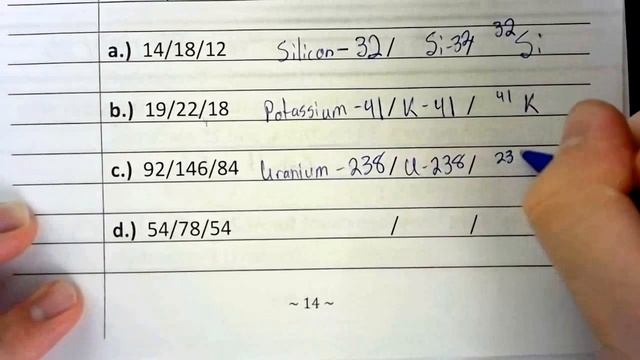 a.) 14/18/12 Silicon - 32 / Si-32 ³²Si
b.) 19/22/18 Potassium - 41 / K - 41 / ⁴¹K
c.) 92/146/84 Uranium - 238 / U - 238 / ²³
d.) 54/78/54 / /
~ 14 ~